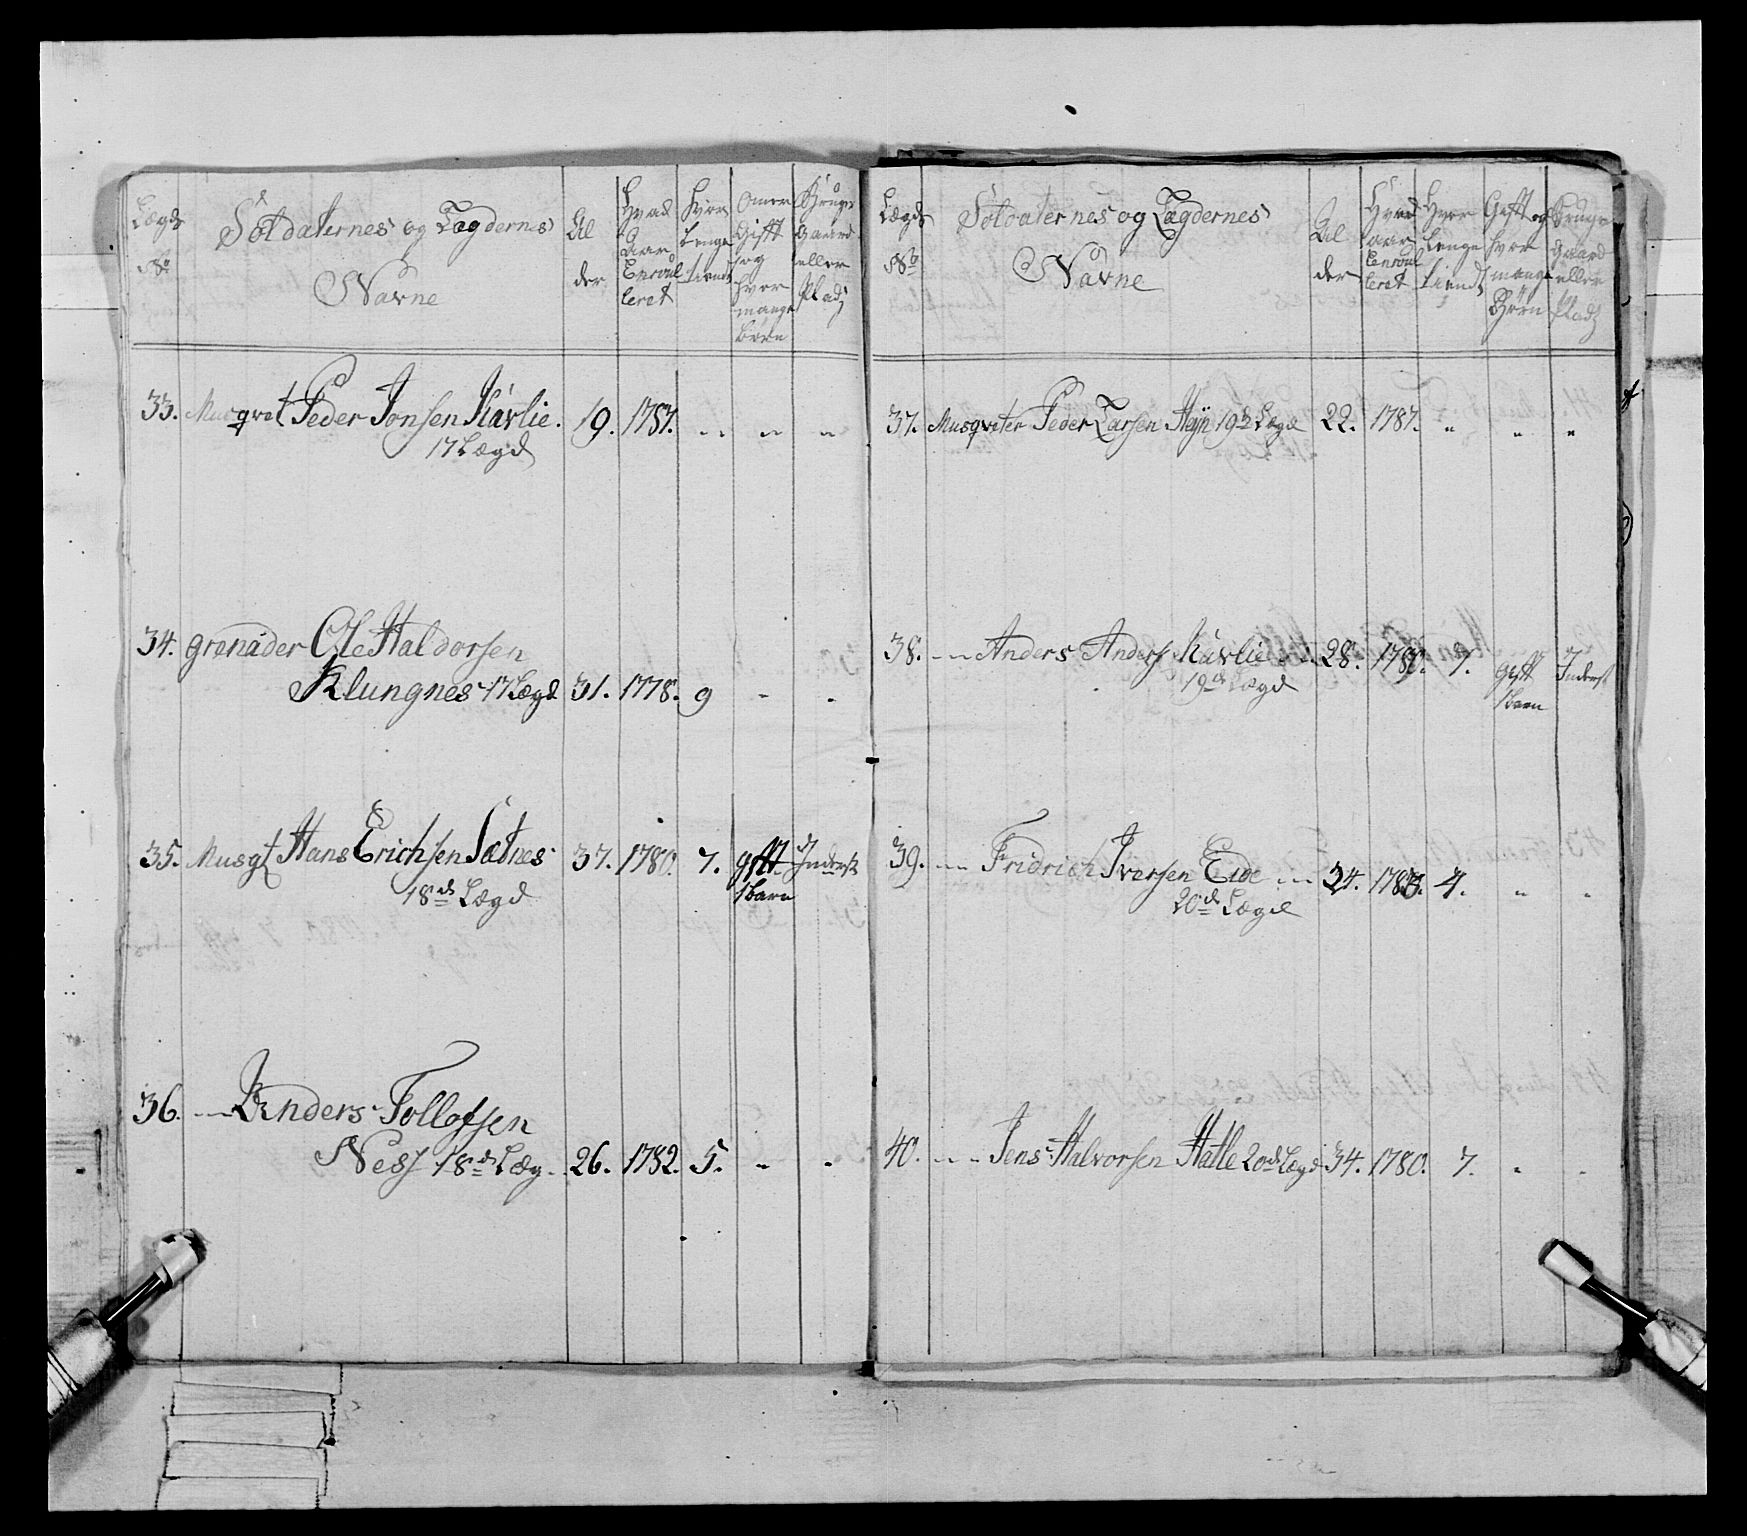 Lægds No
Soldaternes og Lægdernes Navne
Al der
Hvad Aar Enroul leret
Hvor Længe tiendt
Om er Gift og hvor mange børn
Bruger Gaard eller Pladz
33. Musqvet Peder Jonsen Kavlie. 19. 1787. „ „ „
17 Lægd
34. grenader Ole Haldorsen
Klungnes 17 Lægd 31. 1778. 9 - -
35. Musqt Hans Erichsen Sætnes 37. 1780. 7. gift Inderst
18de Lægd 1 barn
36. — Anders Tollofsen
Ness 18de Læg. 26. 1782. 5. - -
Lægds No
Soldaternes og Lægdernes Navne
Al der
Hvad aar Enroul leret
Hvor Længe tiendt
Gift og hvor mange Børn
Bruger Gaard eller Pladz
37. Musqveter Peder Larsen 19de Lægd 22. 1787. „ „ „
38. — Anders Anders Kavlie — 28. 1780. 7. gift Inderst
19de Lægd 1 barn
39. — Fridrich Iversen Eide — 34. 1783. 4. „ „
20de Lægd
40. — Jens Halvorsen Hatle 20de Lægd 34. 1780. 7. - -